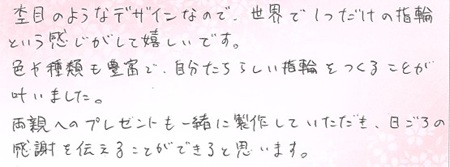 杢目のようなデザインなので、世界で1つだけの指輪
という感じがして嬉しいです。
色や種類も豊富で、自分たちらしい指輪をつくることが
叶いました。
両親へのプレゼントも一緒に製作していただき、日ごろの
感謝を伝えることができると思います。